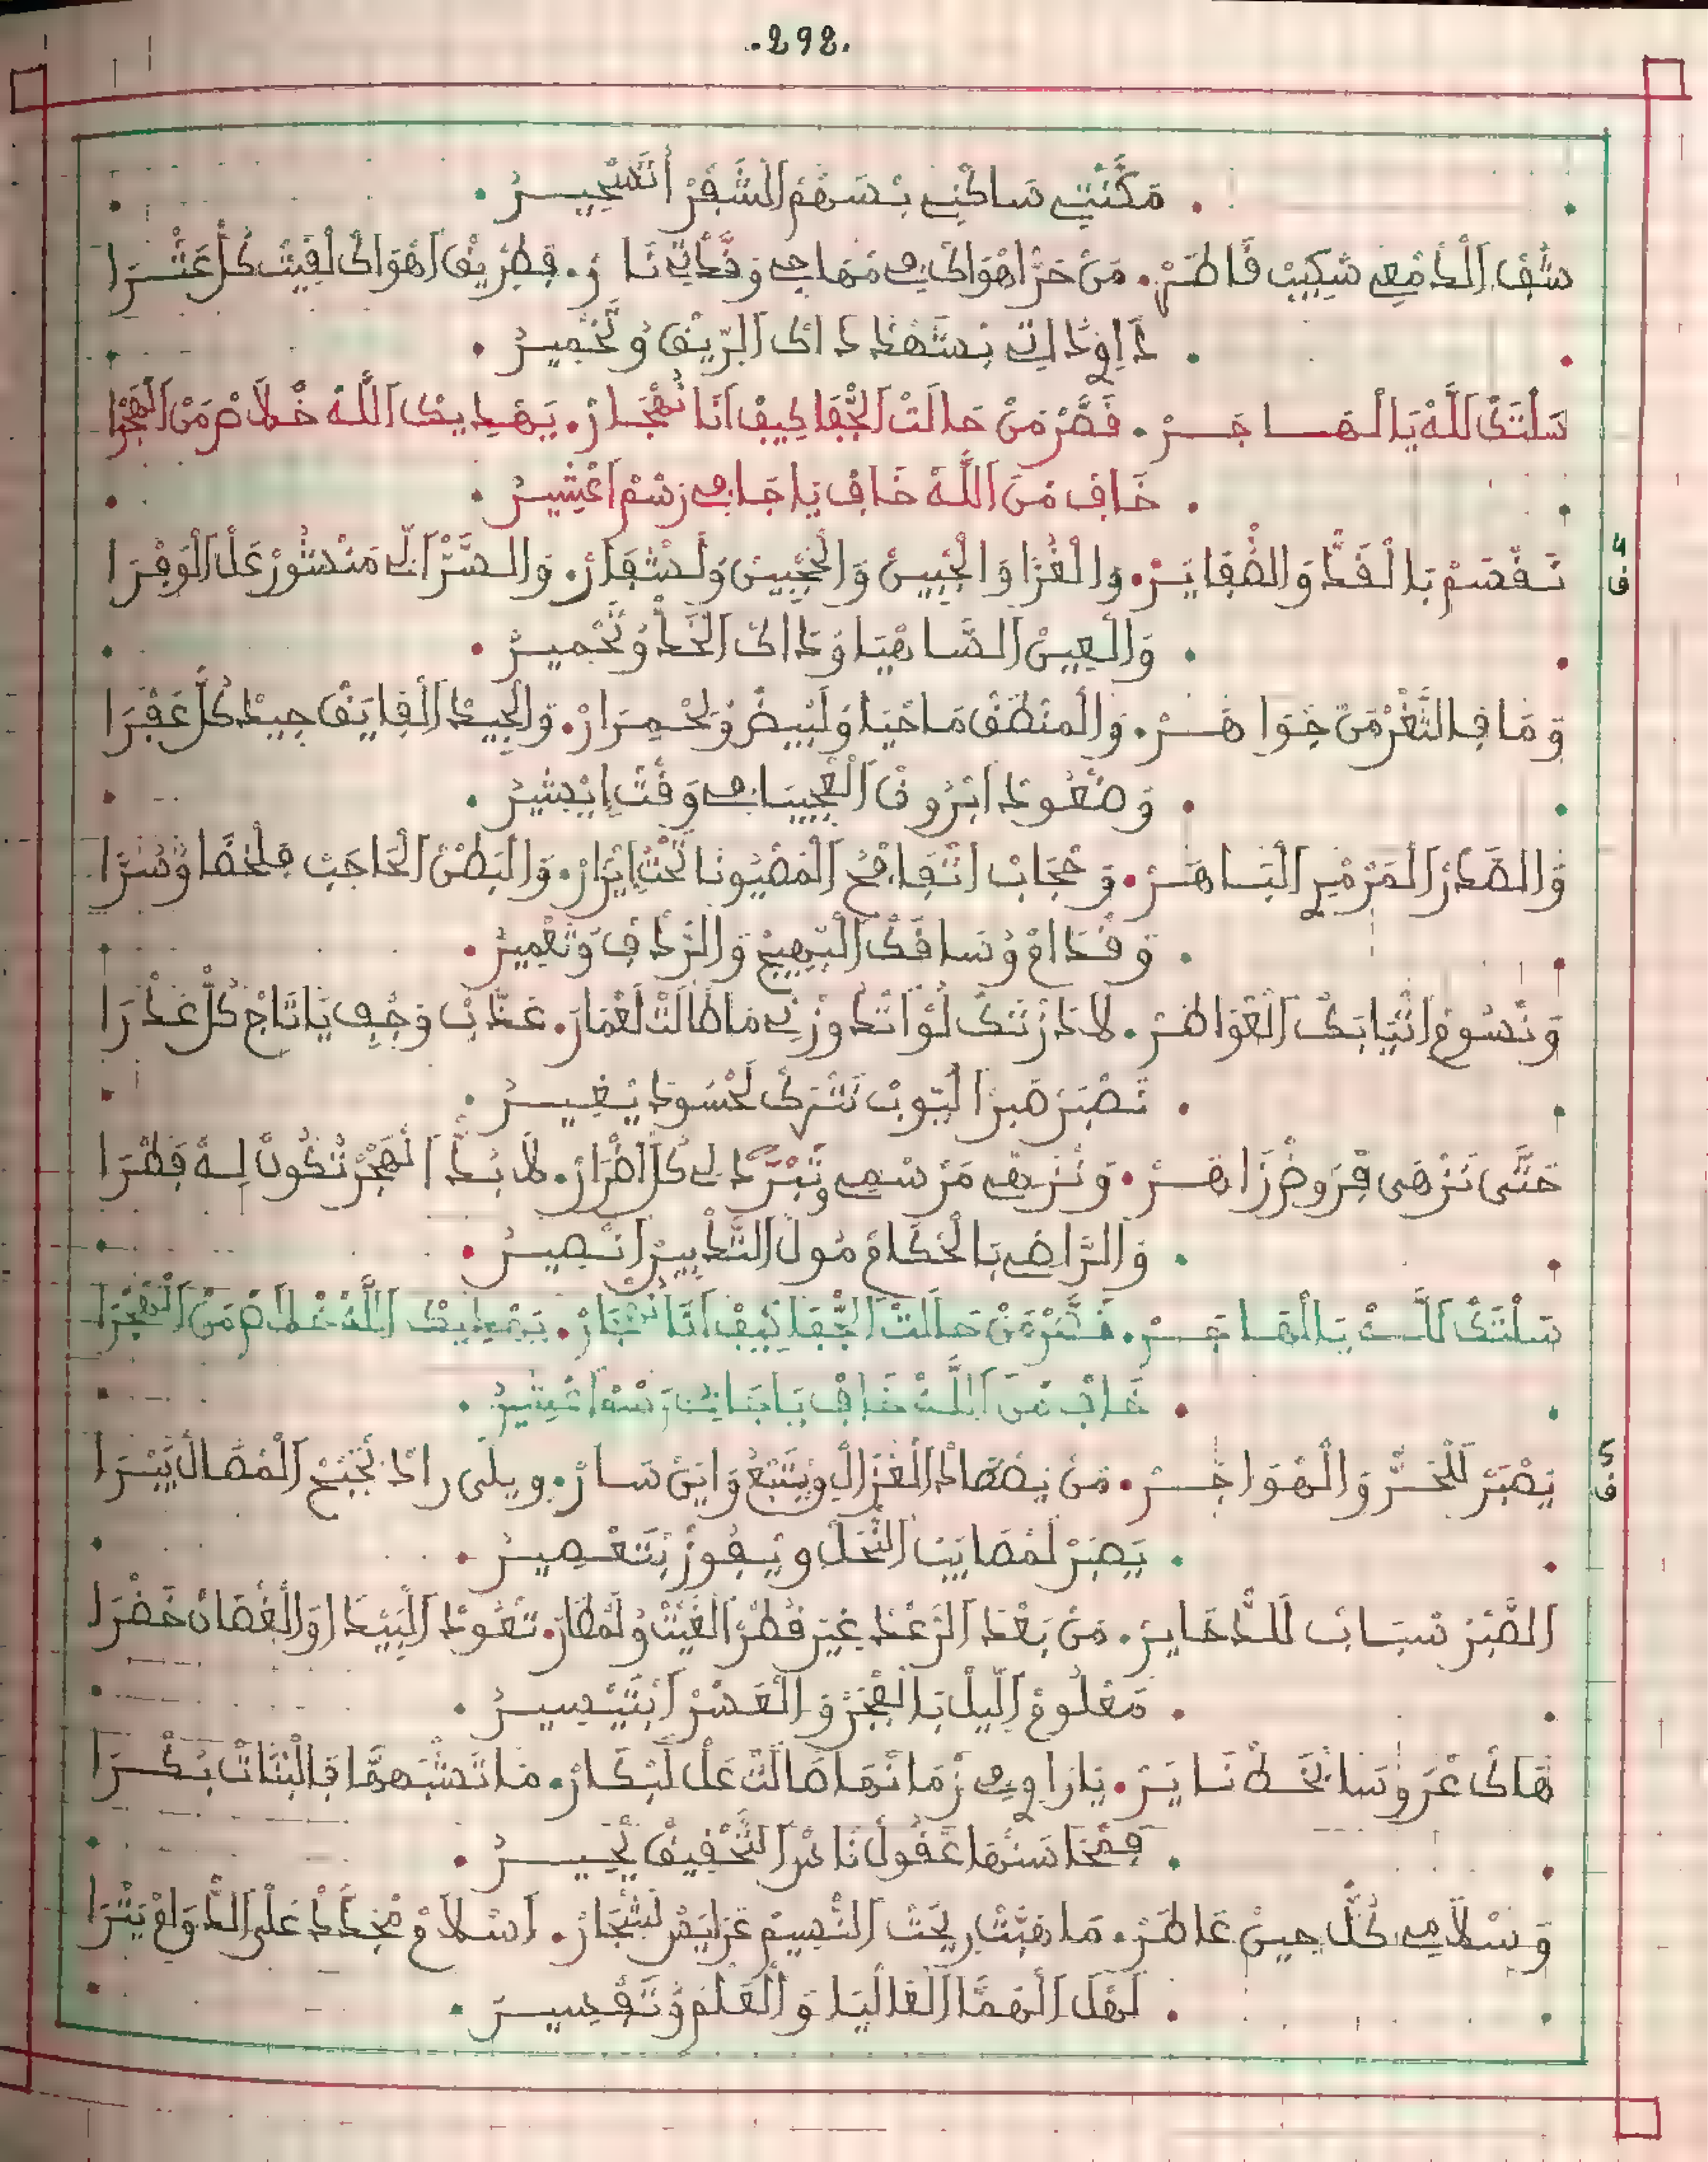 .292.
مَكَّنْتِي سَاكْنِي بْسَهْمْ الشَّفَرْ أَنَسْجِيـــرْ
شُفِ الدَّمْعِي سْكِيبْ قَاطَرْ. مَنْ حَرّْ اهْوَاكْ فِي مْهَاجِي وَقَّدْتِي نَارْ. فِطْرِيقْ اهْوَاكْ لْقِيتْ كُلّْ عَتْرَا
دَاوْدَاتِي بَسْهَدْ دَاكْ الرِّيقْ وُتَخْمِيرْ
سَلْتَكْ للَّهْ يَا الْهَـــاجَـــرْ. قَصَّرْ مَنْ حَالَتْ الجْفَا كِيفْ انَا نُهْجَـارْ. يَهْدِيكْ اللَّهْ خْلاَصْ مَنْ الهَجْرَا
خَافْ مَنَ اللَّهْ خَافْ يَا جَافِي رَسْمْ اعْشِيرْ
ف 4
نَقْسَمْ بَالْقَدّْ وَالضْفَايَرْ. وَالْغُرَّا وَالجْبِينْ وَالحْجْبِينْ وَلَشْفَارْ. وَالسَّرّْ الِّي مَنْشُورْ عَلْ الْوَفْرَا
وَالْعِينْ الصَّاهْيَا وُدَاكْ الخَدّْ وُتَحْمِيرْ
وَمَا فِالثَّغْرْ مَنْ جْوَاهَـــرْ. وَالْمَنْطَقْ مَاحْيَا وَلَبْيَضْ وُلَحْمِرَارْ. وَالجِيدْ الْفَايَقْ جِيدْ كُلّْ عَفْرَا
وَصْعُودْ ابْرُوقْ الْعْجِيبَا فِي وَقْتْ ايْبْشِيرْ
وَالصَّدْرْ الْمَرْمْرِي الْبَـاهَـرْ. وَحْجَابْ اتْفَافَحْ الْمَصْيُونَا تَحْتْ ايْزَارْ. وَالْبَطْنْ الْحَاجَبْ فِلْحْضَا وُسُرَّا
وَقْدَامْ وُسَاقَكْ الْبَهِيجْ وَالرَّدْفْ وُتَعْمِيرْ
وَنْسُومْ اثْيَابَكْ الْعْوَاطَرْ. لاَدَرْتَكْ لُوْ اتْدُوزْنِي مَا طَالَتْ لَعْمَارْ. عَذَّبْ وَجْهِي يَا تَاجْ كُلّْ عَذْرَا
نَصْبَرْ صْبَرْ ايُّوبْ نَتْرَكْ لَحْسُودْ يْغِيـــرْ
حَتَّى نَزْهَى فِرْوضْ زَاهَـــرْ. وَنْزِهِي مَرْسْمِي وُتَبَرَّدْلِي كُلّْ اضْرَارْ. لاَبُدّْ الْهَجْرْ تْكُونْ لِـهْ فَطْرَا
وَالرَّاضِي بَالْحْكَامْ مُولْ التَّدْبِيرْ انْصِيـرْ
سَلْتَكْ للَّـــهْ يَا الْهَـاجَـــرْ. قَصَّرْ مَنْ حَالَتْ الجْفَا كِيفْ انَا نُهْجَارْ. يَهْدِيكْ اللَّهْ خْلاَصْ مَنْ الهَجْرَا
خَافْ مَنَ اللَّهْ خَافْ يَا جَافِي رَسْمْ اعْشِيرْ
ف 5
يَصْبَرْ لَلْحَـــرّْ وَالْهْوَاجَـــرْ. مَنْ يَصْطَادْ الْغْزَالْ وِيتَبْعُ وَايْنْ سَـارْ. وِيلَى رَادْ نَجْحْ الْمْصَالْ يَبْـرَا
يَصْبَرْ لَمْصَايَبْ النّْحَلْ وِيْفُوزْ بْتَعْصِيـرْ
الصّْبَرْ سْبَـابْ لَلدّْخَايَرْ. مَنْ بَعْدْ الرَّعْدْ غِيرْ قَطْرْ الْغَيْتْ وُلَمْطَارْ. تْعُودْ الْبَيْدَا وَالْغْصَانْ خَضْرَا
مَعْلُومْ اللِّيلْ بَالْفْجَرْ وَالْعَسْرْ ابْتَيْسِيـرْ
هَاكْ عْرُوسَا بْخَطّْ نَـايَرْ. يَا رَاوِي زْمَانْهَا صَالَتْ عَلْ لَبْكَارْ. مَا تَشْبَهْهَا فِالْبْنَاتْ بَكْـرَا
فِمْحَاسَنْهَا عْقُولْ نَاسْ التَّحْقِيقْ تْحِيـــرْ
وَسْلاَمِي كُلّْ حِينْ عَاطَرْ. مَا هَبَّتْ رِيحْتْ النّْسِيمْ عْرَايَسْ لَشْجَارْ. اسْلاَمْ مْجَدَّدْ عَلَى الدّْوَامْ يَتْرَا
لَهْلْ الْهَمَّا الْعَالْيَا وَالْعَلْمْ وُتَفْسِيـــرْ